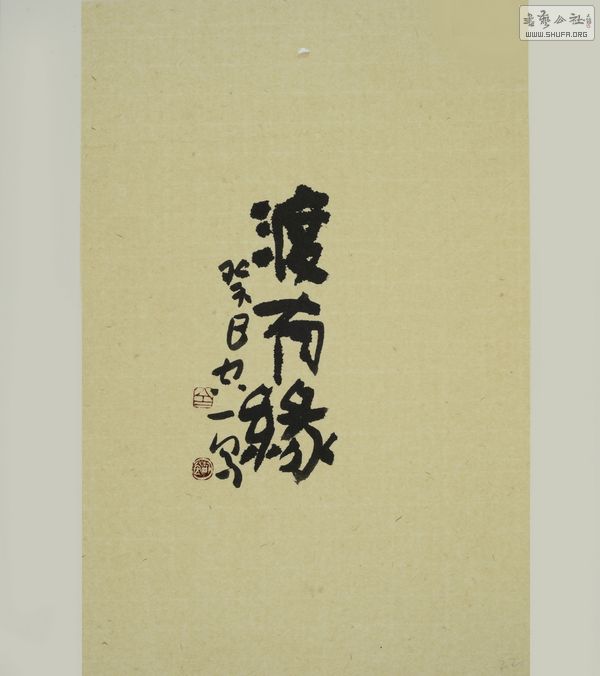 渡有緣
癸巳 一寫
书艺公社
WWW.SHUFA.ORG